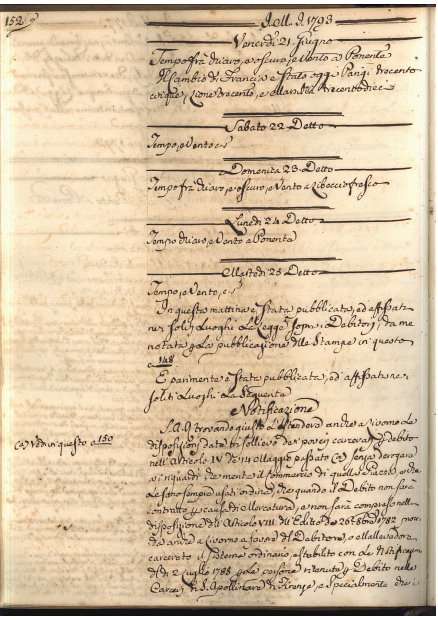 152.
A dì. d. 1793
Venerdì 21 Giugno
Tempo frà chiaro, e oscuro, e Vento a Ponente
Il Cambio di Francia è stato oggi Parigi trecento
cinque, Lione trecento, e Marsilia trecentodiece
Sabato 22 Detto
Tempo, e Vento c. s.
Domenica 23 Detto
Tempo frà chiaro, e oscuro, e Vento a Libeccio fresco
Lunedì 24 Detto
Tempo chiaro, e Vento a Ponente
Martedì 25 Detto
Tempo, e Vento, c. s.
In questa mattina è stata pubblicata, ed affissata
nei soliti Luoghi la Legge sopra i Debitori, da me
notata la pubblicazione delle Stampe in questo
a 148
E parimente è stata pubblicata, ed affissata nei
soliti Luoghi la seguente
Notificazione
S. A. R. trovando giusto l'estendere anche a Livorno le
(a) Vedi in questo a 150
disposizioni date in sollievo dei poveri carcerati Debito
nell'Articolo IV de' 14 Maggio passato (a) senza derogare
ai riguardi che merita il Commercio di quella Piazza, anche
le sono sempre usati, ordina, che quando il Debito non sarà
contratto causa di Mercatura, e non sarà compreso nelle
disposizioni dell'Articolo VIII dell'Editto de 26 8bre 1782
anche a Livorno a favore del Debitore, e all'allevatore
carcerato il sistema ordinario, stabilito con le Notificazioni
de' 2 Luglio 1788 le persone ritenute Debito nelle
Carceri di S. Apollinare di Firenze, e specialmente che